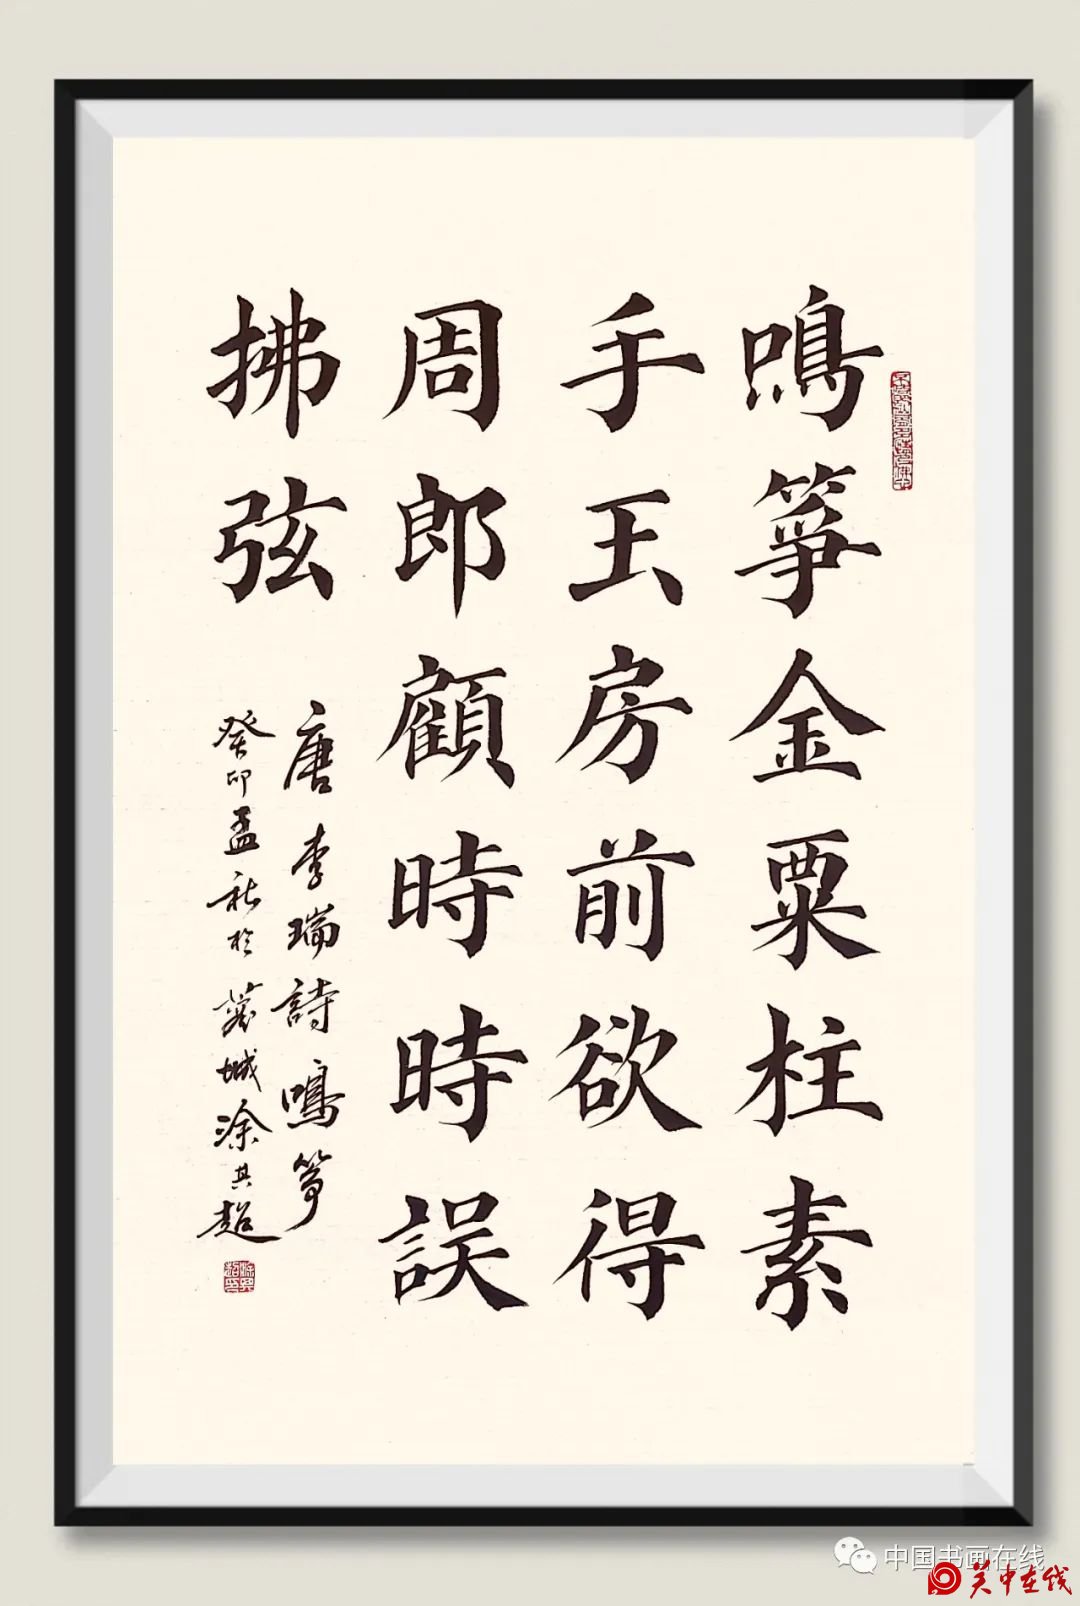 鳴箏金粟柱素
手玉房前欲得
周郎顧時時誤
拂弦
唐李瑞詩鳴箏
癸卯孟秋於蓉城涂其超
中国书画在线
关中在线